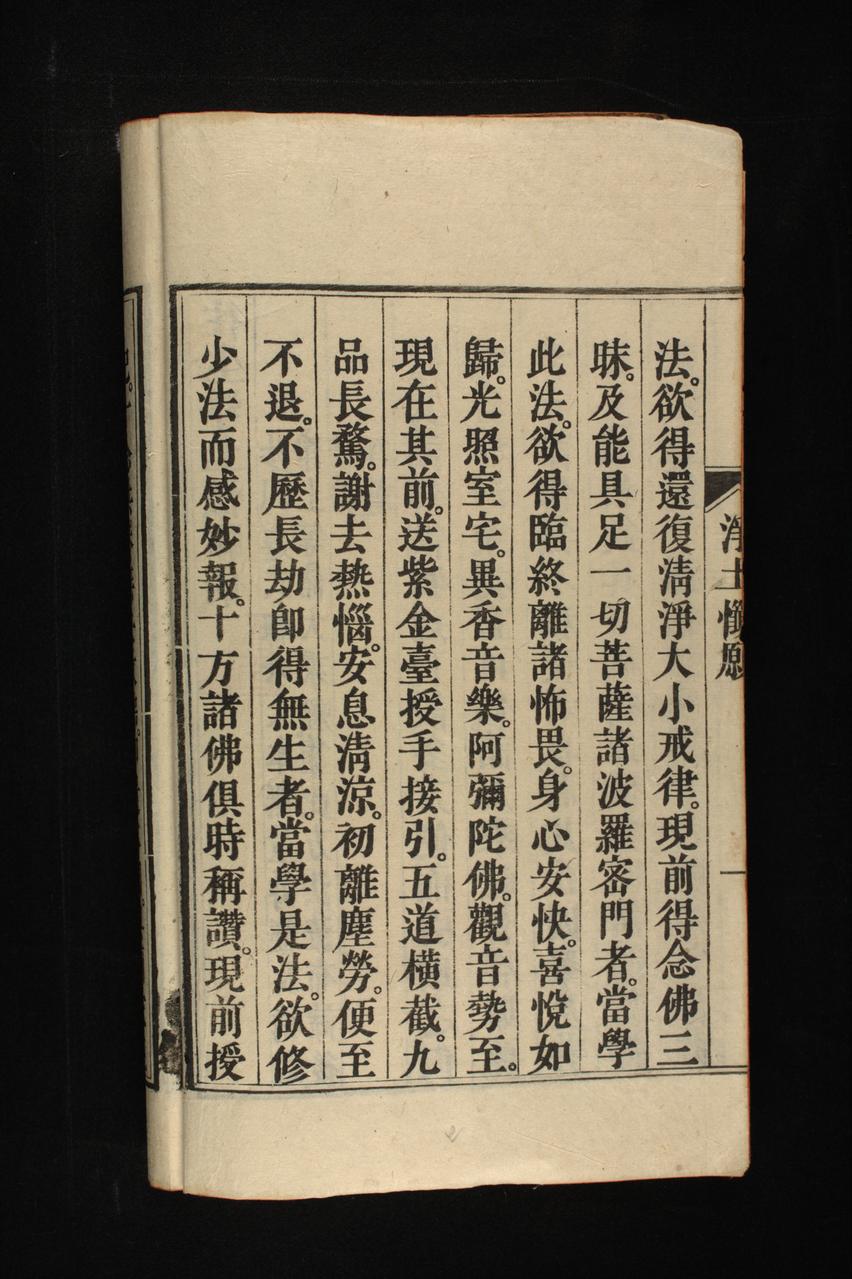 淨土懺愿
一
法。欲得還復淸淨大小戒律。現前得念佛三
昧。及能具足一切菩薩諸波羅密門者。當學
此法。欲得臨終離諸怖畏。身心安快。喜悅如
歸。光照室宅。異香音樂。阿彌陀佛。觀音勢至。
現在其前。送紫金臺授手接引。五道橫截。九
品長騖。謝去熱惱。安息淸涼。初離塵勞。便至
不退。不歷長劫卽得無生者。當學是法。欲修
少法而感妙報。十方諸佛俱時稱讚。現前授